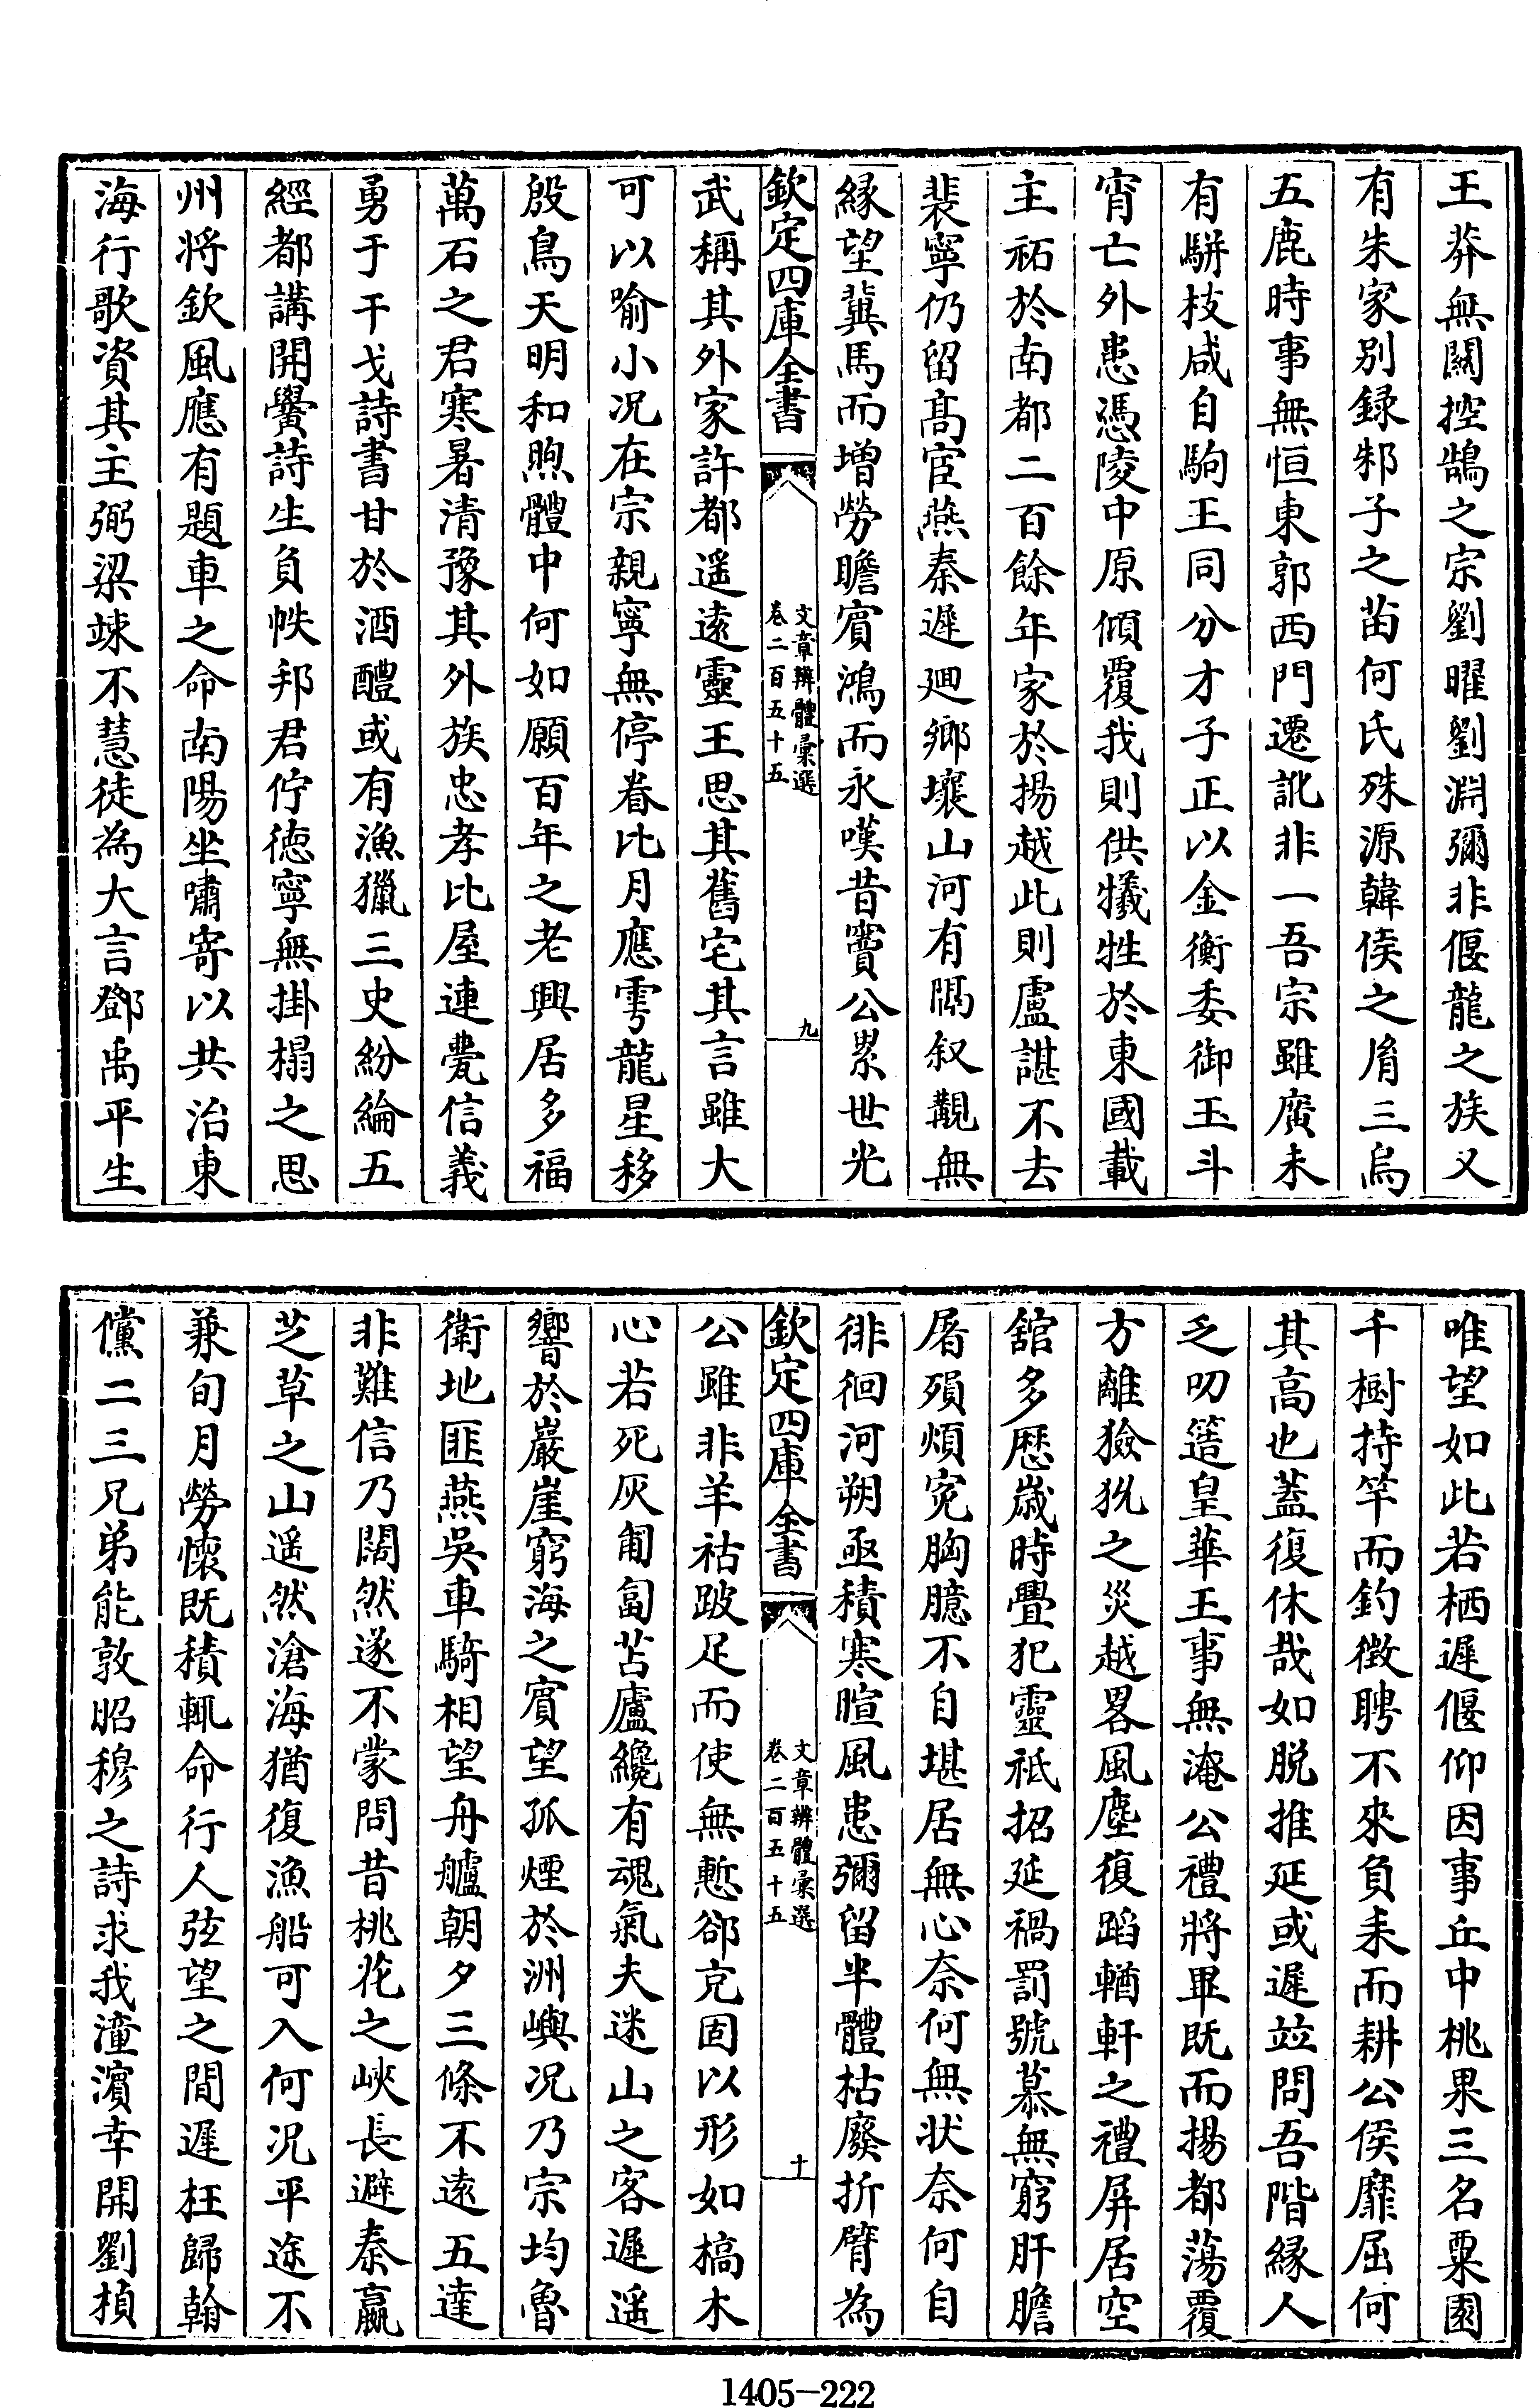 王莽無關控鵠之宗劉曜劉淵彌非偃龍之族又
有朱家別録邾子之苗何氏殊源韓侯之胤三烏
五鹿時事無恒東郭西門遷訛非一吾宗雖廣未
有駢枝咸自駒王同分才子正以金衡委御玉斗
宵亡外患憑陵中原傾覆我則供犧牲於東國載
主祏於南都二百餘年家於揚越此則盧諶不去
裴寧仍留髙宦燕秦遲迴鄉壤山河有隅叙覯無
縁望冀馬而增勞瞻賓鴻而永嘆昔竇公累世光
欽定四庫全書
文章辨體彙選
卷二百五十五
九
武稱其外家許都遥遠靈王思其舊宅其言雖大
可以喻小况在宗親寧無停眷比月應雩龍星移
殷鳥天明和煦體中何如願百年之老興居多福
萬石之君寒暑清豫其外族忠孝比屋連甍信義
勇于干戈詩書甘於酒醴或有漁獵三史紛綸五
經都講開黌詩生負帙邦君佇徳寧無掛榻之思
州将欽風應有題車之命南陽坐嘯寄以共治東
海行歌資其王弼梁竦不慧徒為大言鄧禹平生
唯望如此若栖遲偃仰因事丘中桃果三名粟園
千樹持竿而釣徴聘不來負耒而耕公侯靡屈何
其高也蓋復休哉如脱推延或遲竝問吾階縁人
乏叨簉皇華王事無淹公禮將畢既而揚都蕩覆
方離獫狁之災越畧風塵復蹈輶軒之禮屏居空
舘多歴嵗時疊犯靈祗招延禍罰號慕無窮肝膽
屠殞煩寃胸臆不自堪居無心奈何無状奈何自
徘徊河朔亟積寒暄風患彌留半體枯廢折臂為
欽定四庫全書
文章辨體彙選
卷二百五十五
十
公雖非羊祜跛足而使無慙郤克固以形如槁木
心若死灰匍匐苫廬纔有魂氣夫迷山之客遲遥
響於巖崖窮海之賓望孤煙於洲嶼况乃宗均魯
衛地匪燕吳車騎相望舟艫朝夕三條不逺五達
非難信乃闊然遂不蒙問昔桃花之峽長避秦嬴
芝草之山遥然滄海猶復漁船可入何况平途不
兼旬月勞懷既積輒命行人弦望之間遲枉歸翰
儻二三兄弟能敦昭穆之詩求我漳濱幸開劉楨
1405-222